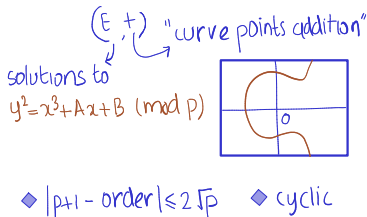 (E,+) "curve points addition"
solutions to
y²=x³+Ax+B (mod p)
O
|p+1 - order|≤2√p
cyclic